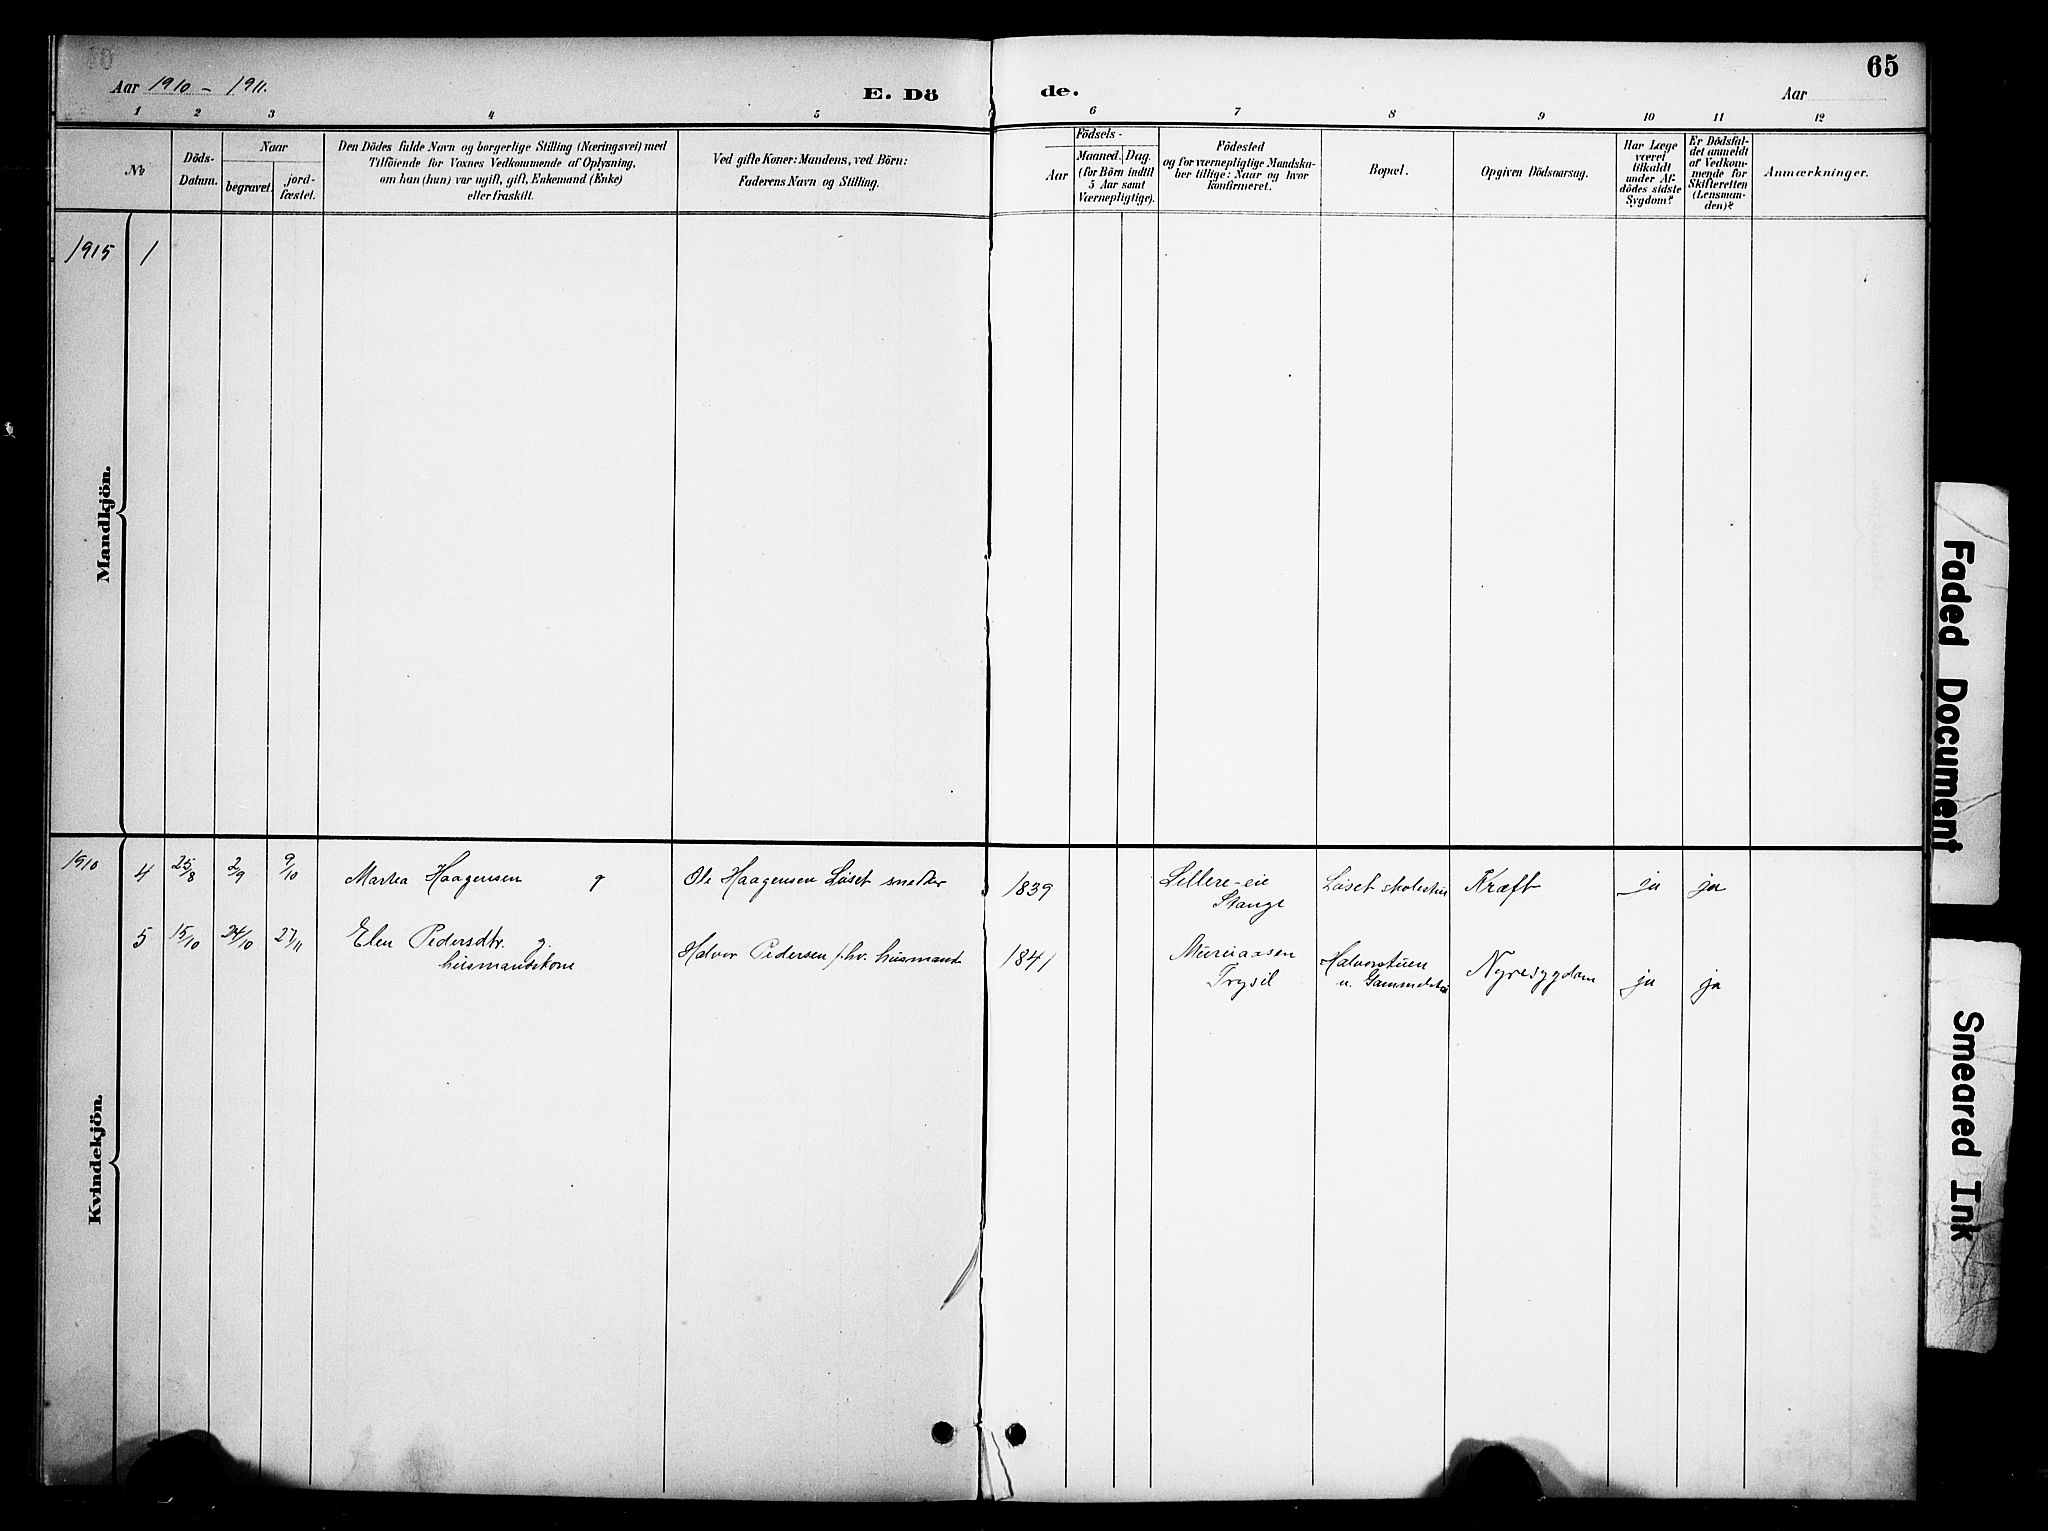 65
Aar 1910 - 1911.
E. Dö
de.
Aar
1 2 3 4 5 6 7 8 9 10 11 12
No
Döds-
Datum.
Naar
begravet.
jord-
fæstet.
Den Dödes fulde Navn og borgerlige Stilling (Næringsvei) med
Tilföiende for Voxnes Vedkommende af Oplysning,
om han (hun) var ugift, gift, Enkemand (Enke)
eller fraskilt.
Ved gifte Koner: Mandens, ved Börn:
Faderens Navn og Stilling.
Födsels-
Aar
Maaned.
Dag.
(for Börn indtil
5 Aar samt
Værnepligtige).
Födested
og for værnepligtige Mandska-
ber tillige: Naar og hvor
konfirmeret.
Bopæl.
Opgiven Dödsaarsag.
Har Læge
været
tilkaldt
under Af-
dödes sidste
Sygdom?
Er Dödsfal-
det anmeldt
af Vedkom-
mende for
Skifteretten
(Lensman-
den)?
Anmærkninger.
1915 1
Mandkjön.
1910
4 25/8 2/9 9/10 Martea Haagensen g Ole Haagensen Løset smed 1839 Lillere-eie Løset Kræft ja ja
Stange
5 15/10 24/10 27/11 Elen Pedersdtr. g. Halvor Pedersen fhv. husmand 1841 Halvorstuen Nyresygdom ja ja
husmandskone Trysil u. Gammelstu
Kvindekjön.
Faded Document
Smeared Ink